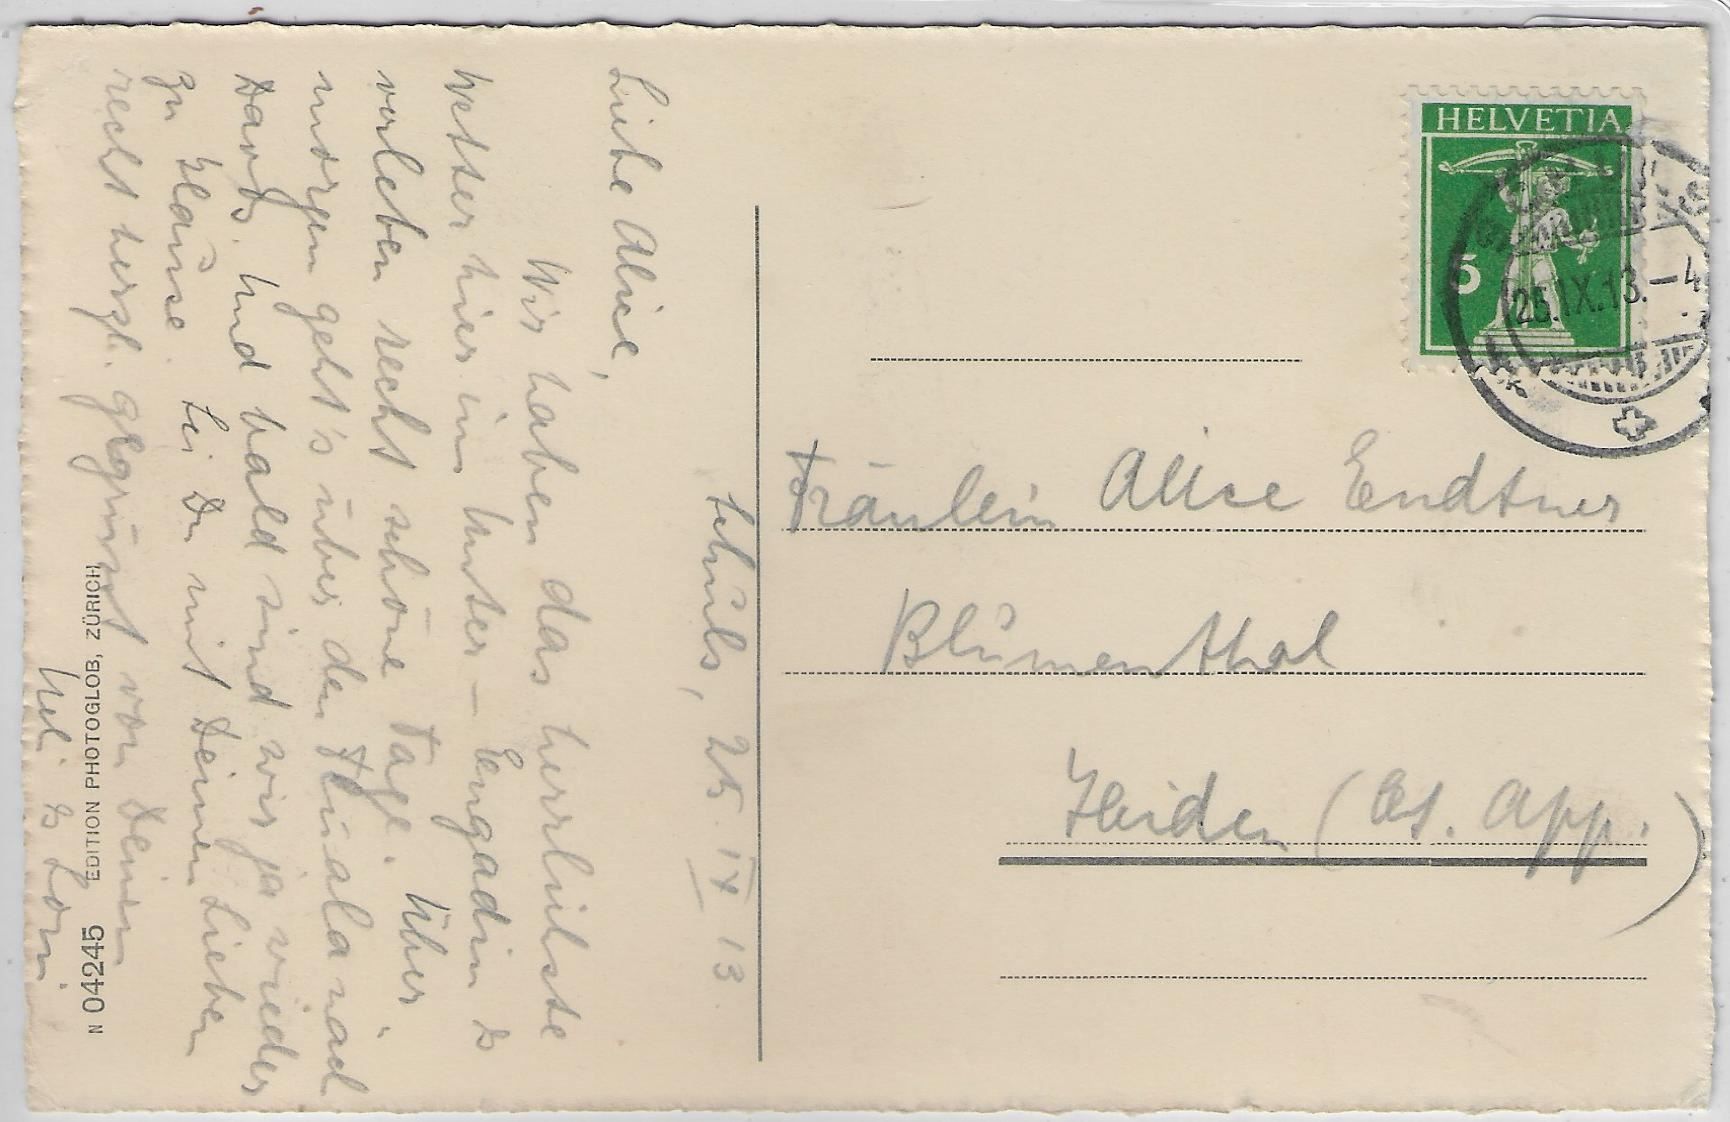 Schuls, 25. IX 13.
Liebe Alice,
Wir haben das herrlichste
Wetter hier im Unter-Engadin &
verleben recht schöne Tage. Über,
morgen geht's über den Flüela nach
Davos. Und bald sind wir ja wieder
zu Hause. Sei Du mit Deinen Lieben
recht herzl. gegrüsst von Deinen
Ueli &
N 04245 EDITION PHOTOGLOB, ZÜRICH
HELVETIA
5
25.IX.13.-4
Fräulein Alice Endtner
Blumenthal
Heiden (Ct. App.)